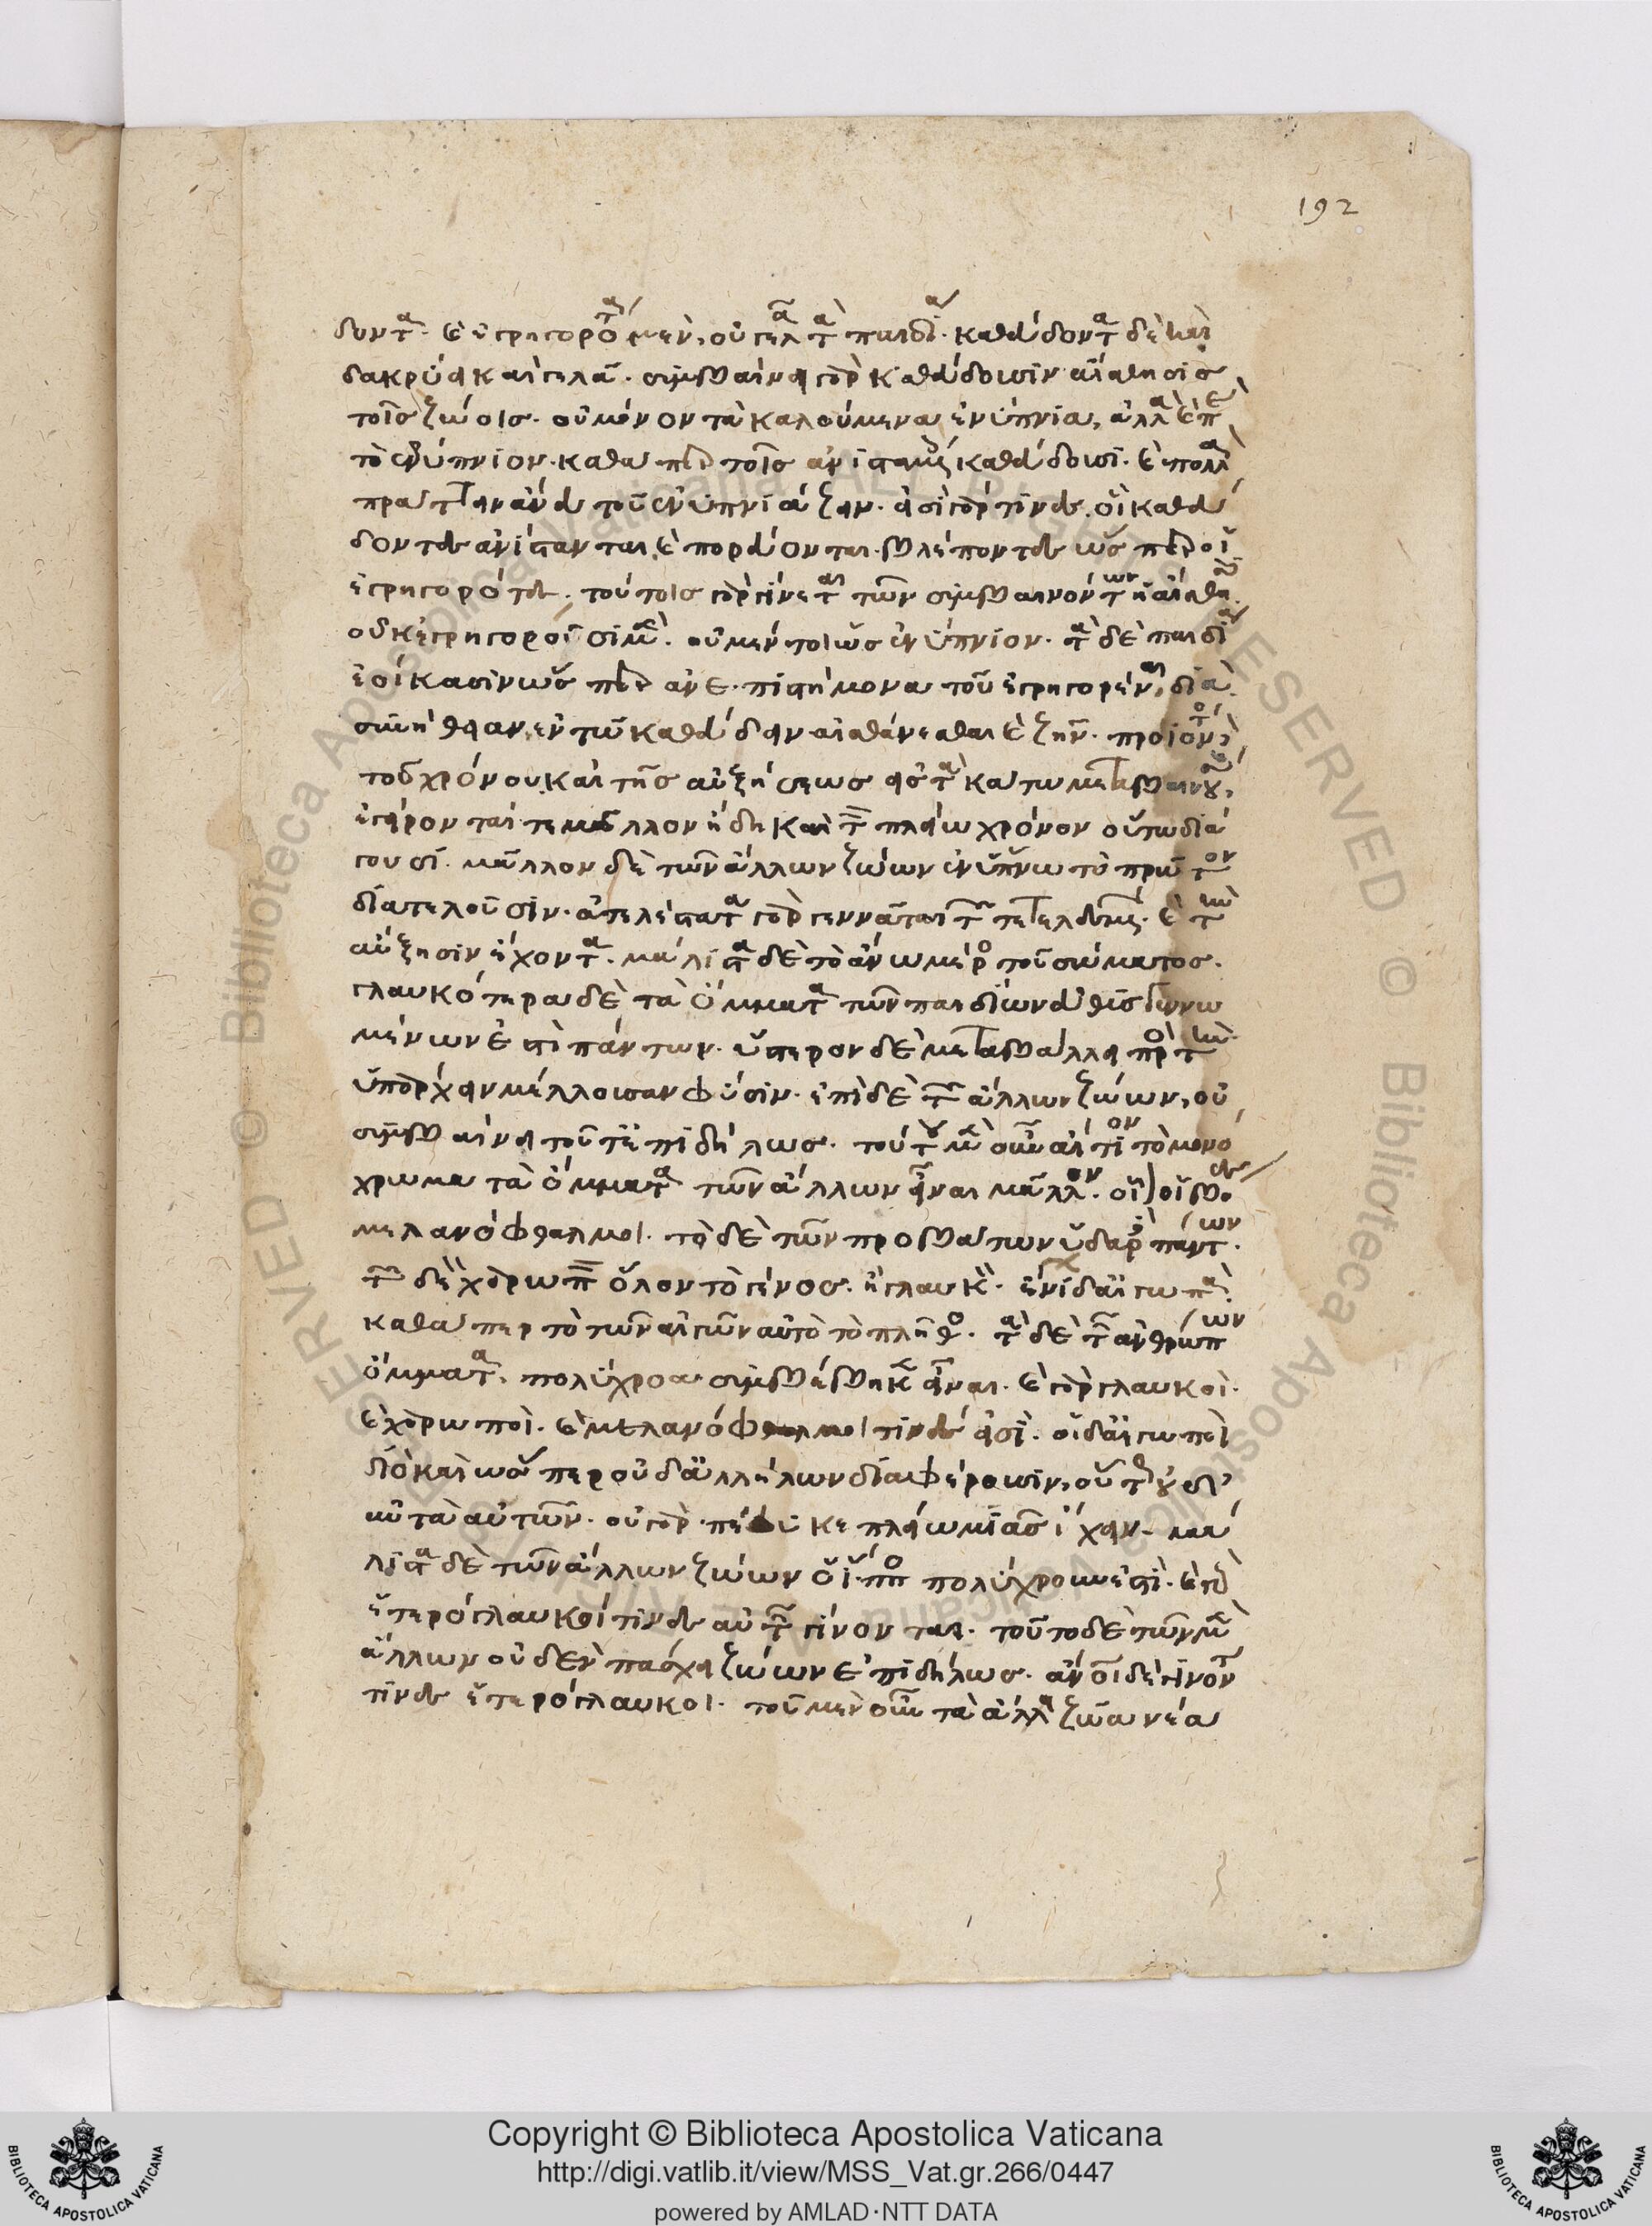 192
δοντα. καὶ ἐγρηγορότα μὲν, οὐ γελᾶ τὰ παιδία. καθεύδοντα δὲ καὶ
δακρύει καὶ γελᾶ. συμβαίνει γὰρ καθεύδουσιν αἴσθησις
τοῖς ζώοις. οὐ μόνον τὰ καλούμενα ἐνύπνια, ἀλλὰ καὶ παρὰ
τὸ ἐνύπνιον. καθάπερ τοῖς ἀνισταμένοις καθεύδουσι. καὶ πολλὰ
πράττειν ἄνευ τοῦ ἐνυπνιάζειν. εἰσὶ γάρ τινες. οἳ καθεύ
δοντες ἀνίστανται καὶ πορεύονται. βλέποντες ὥσπερ οἱ
ἐγρηγορότες. τούτοις γὰρ γίνεται τῶν συμβαινόντων ἡ αἴσθησις
οὐκ ἐγρηγοροῦσι μὲν. οὐ μέντοι ὡς ἐνύπνιον. τὰ δὲ παιδία
ἐοίκασιν ὥσπερ ἀνεπιστήμονα τοῦ ἐγρηγορέναι, διὰ
συνήθειαν ἐν τῷ καθεύδειν αἰσθάνεσθαι καὶ ζῆν. προϊόντος
τοῦ χρόνου καὶ τῆς αὐξήσεως εἰς τὰ κάτω μεταβαινούσης,
ἐγείρονταί τε μᾶλλον ἤδη καὶ τὸν πλείω χρόνον οὕτω διά
γουσι. μᾶλλον δὲ τῶν ἄλλων ζώων ἐν ὕπνω τὸ πρῶτον
διατελοῦσιν. ἀτελέστατα γὰρ γεννᾶται τῶν τετελεσμένων. καὶ τὴν
αὔξησιν ἔχοντα. μάλιστα δὲ τὸ ἄνω μέρος τοῦ σώματος.
γλαυκότερα δὲ τὰ ὄμματα τῶν παιδίων εὐθὺς γεννω
μένων ἐστὶ πάντων. ὕστερον δὲ μεταβάλλει πρὸς τὴν
ὑπάρχειν μέλλουσαν φύσιν. ἐπὶ δὲ τῶν ἄλλων ζώων, οὐ
συμβαίνει τοῦτ' ἐπιδήλως. τούτου μὲν οὖν αἴτιον τὸ μονό
χρωμα τὰ ὄμματα τῶν ἄλλων εἶναι μᾶλλον. οἷον οἱ βόες
μελανόφθαλμοι. τὸ δὲ τῶν προβάτων ὑδαρὲς πάντων.
τῶν δὲ χαρωπὸν ὅλον τὸ γένος. ἢ γλαυκὸν. ἔνιδ' αἰγωπὰ.
καθάπερ τὸ τῶν αἰγῶν αὐτὸ τὸ πλῆθος. τὰ δὲ τῶν ἀνθρώπων
ὄμματα, πολύχροα συμβέβηκεν εἶναι. καὶ γὰρ γλαυκοὶ.
καὶ χαρωποὶ. καὶ μελανόφθαλμοί τινές εἰσὶ. οἱ δ' αἰγωποὶ
διὸ καὶ ὥσπερ οὐδ' ἀλλήλων διαφέρουσιν, οὕτως οὐδ'
αὐτὰ αὑτῶν. οὐ γὰρ πέφυκε πλείω μιᾶς ἴσχειν. μά
λιστα δὲ τῶν ἄλλων ζώων ὁ ἵππος πολύχρουν ἐστὶ. καὶ γὰρ
ἑτερόγλαυκοί τινες αὐτῶν γίνονται. τοῦτο δὲ τῶν μὲν
ἄλλων οὐδὲν πάσχει ζώων ἐπιδήλως. ἄνθρωποι δὲ γίνονταί
τινες ἑτερόγλαυκοι. τοῦ μὲν οὖν τὰ ἄλλα ζῶα νέα
Copyright © Biblioteca Apostolica Vaticana
http://digi.vatlib.it/view/MSS_Vat.gr.266/0447
powered by AMLAD·NTT DATA